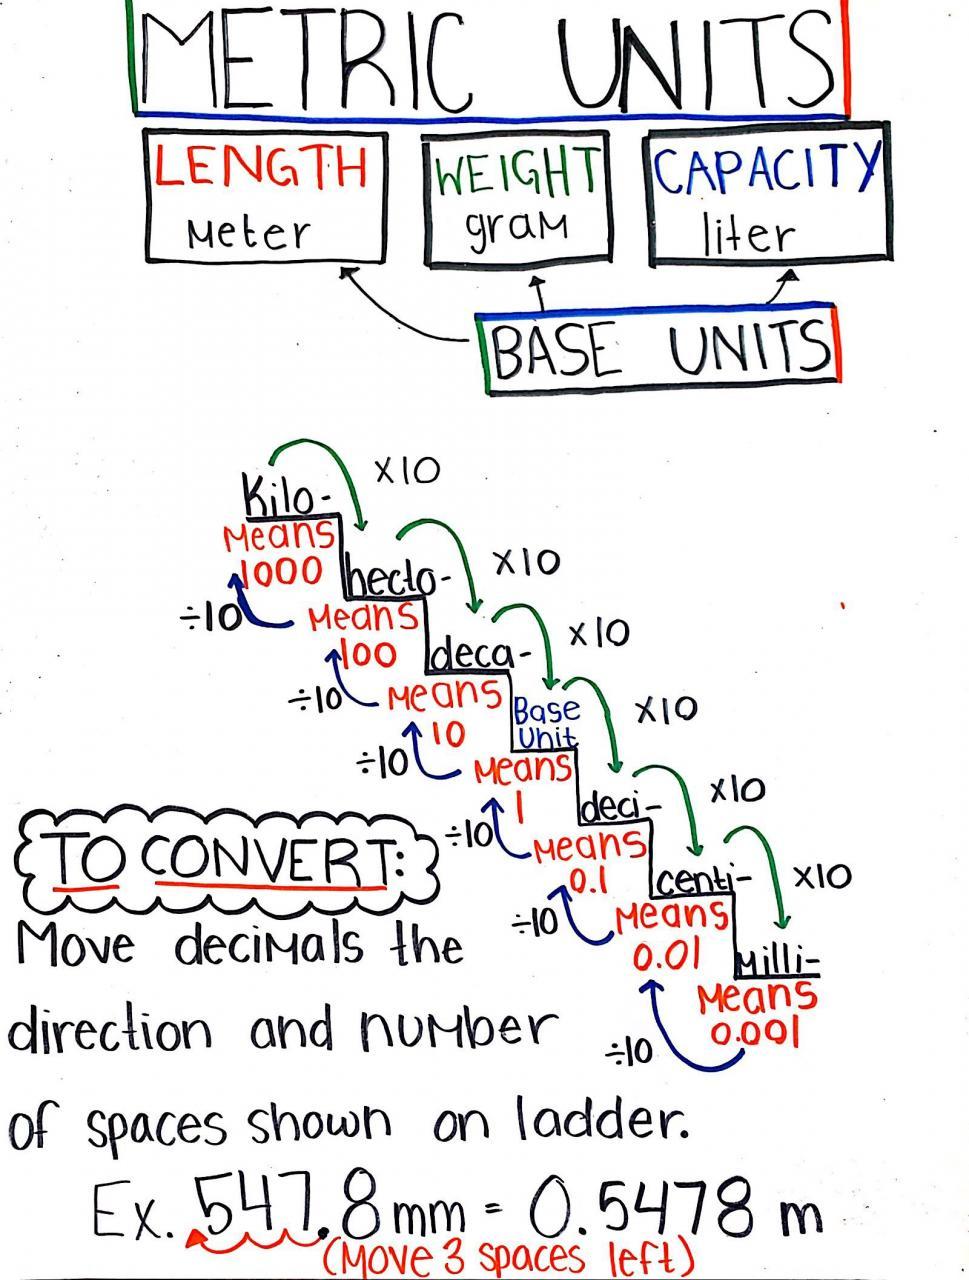 METRIC UNITS
LENGTH
Meter
WEIGHT
gram
CAPACITY
liter
BASE UNITS
Kilo-
Means
1000
x10
÷10
hecto-
Means
100
x10
÷10
deca-
Means
10
x10
÷10
Base
Unit
Means
1
x10
÷10
deci-
Means
0.1
x10
÷10
centi-
Means
0.01
x10
÷10
Milli-
Means
0.001
TO CONVERT:
Move decimals the
direction and number
of spaces shown on ladder.
Ex. 547.8mm = 0.5478 m
(Move 3 spaces left)